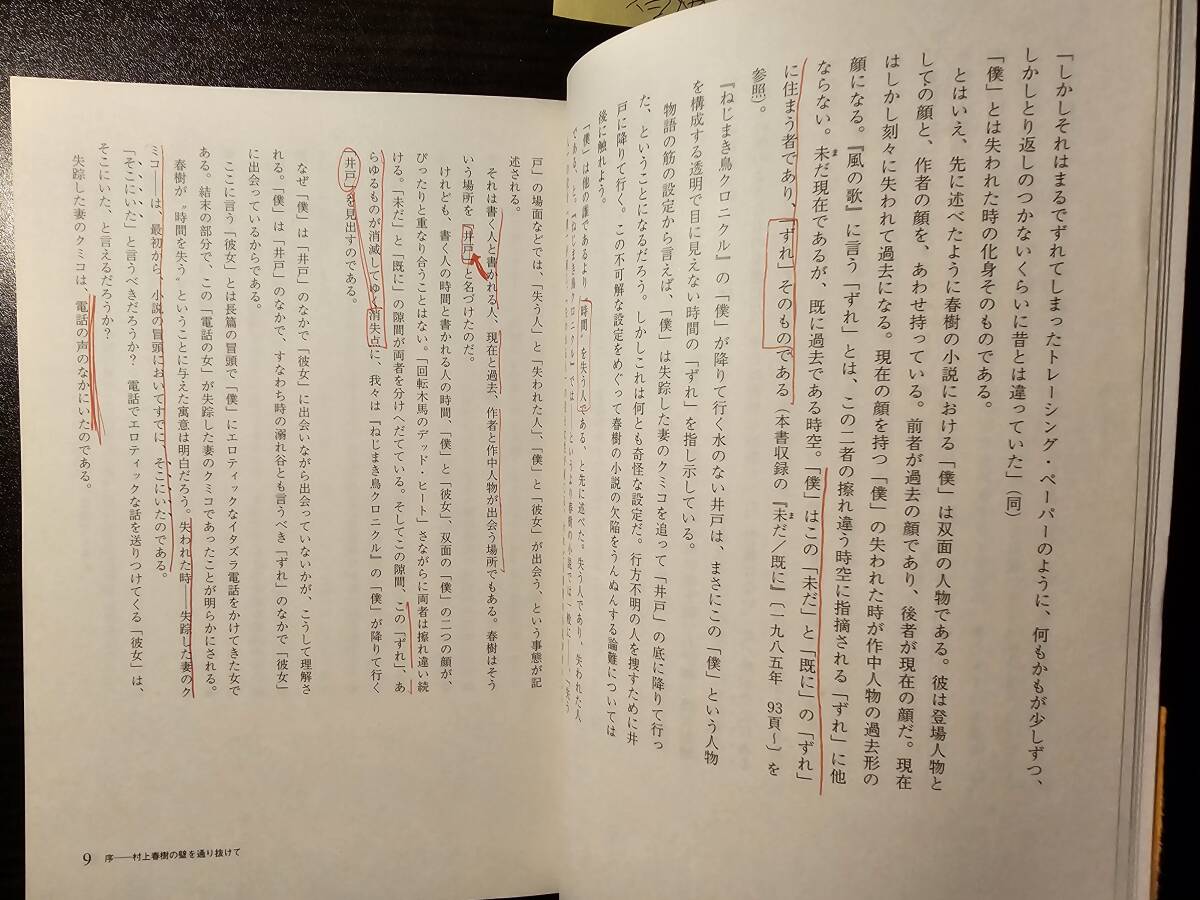 「しかしそれはまるでずれてしまったトレーシング・ペーパーのように、何もかもが少しずつ、
しかしとり返しのつかないくらいに昔とは違っていた」（同）
「僕」とは失われた時の化身そのものである。
とはいえ、先に述べたように春樹の小説における「僕」は双面の人物である。彼は登場人物と
しての顔と、作者の顔を、あわせ持っている。前者が過去の顔であり、後者が現在の顔だ。現在
はしかし刻々に失われて過去になる。現在の顔を持つ「僕」の失われた時が作中人物の過去形の
顔になる。『風の歌』に言う「ずれ」とは、この二者の擦れ違う時空に指摘される「ずれ」に他
ならない。未だ現在であるが、既に過去である時空。「僕」はこの「未だ」と「既に」の「ずれ」
に住まう者であり、「ずれ」そのものである（本書収録の『未だ／既に』〔一九八五年 93頁〜〕を
参照）。
『ねじまき鳥クロニクル』の「僕」が降りて行く水のない井戸は、まさにこの「僕」という人物
を構成する透明で目に見えない時間の「ずれ」を指し示している。
物語の筋の設定から言えば、「僕」は失踪した妻のクミコを追って「井戸」の底に降りて行っ
た、ということになるだろう。しかしこれは何とも奇怪な設定だ。行方不明の人を捜すために井
戸に降りて行く。この不可解な設定をめぐって春樹の小説の欠陥をうんぬんする論難については
後に触れよう。
「僕」は他の誰であるより〝時間〟を失う人である、と先に述べた。失う人であり、失われた人
である、と。『ねじまき鳥クロニクル』では
戸」の場面などでは、「失う人」と「失われた人」、「僕」と「彼女」が出会う、という事態が記
述される。
それは書く人と書かれる人、現在と過去、作者と作中人物が出会う場所でもある。春樹はそう
いう場所を「井戸」と名づけたのだ。
けれども、書く人の時間と書かれる人の時間、「僕」と「彼女」、双面の「僕」の二つの顔が、
ぴったりと重なり合うことはない。「回転木馬のデッド・ヒート」さながらに両者は擦れ違い続
ける。「未だ」と「既に」の隙間が両者を分けへだてている。そしてこの隙間、この「ずれ」、あ
らゆるものが消滅してゆく消失点に、我々は『ねじまき鳥クロニクル』の「僕」が降りて行く
「井戸」を見出すのである。
なぜ「僕」は「井戸」のなかで「彼女」に出会いながら出会っていないかが、こうして理解さ
れる。「僕」は「井戸」のなかで、すなわち時の溺れ谷とも言うべき「ずれ」のなかで「彼女」
に出会っているからである。
ここに言う「彼女」とは長篇の冒頭で「僕」にエロティックなイタズラ電話をかけてきた女で
ある。結末の部分で、この「電話の女」が失踪した妻のクミコであったことが明らかにされる。
春樹が〝時間を失う〟ということに与えた寓意は明白だろう。失われた時――失踪した妻のク
ミコ――は、最初から、小説の冒頭においてすでに、そこにいたのである。
「そこにいた」と言うべきだろうか？ 電話でエロティックな話を送りつけてくる「彼女」は、
そこにいた、と言えるだろうか？
失踪した妻のクミコは、電話の声のなかにいたのである。
9 序――村上春樹の壁を通り抜けて